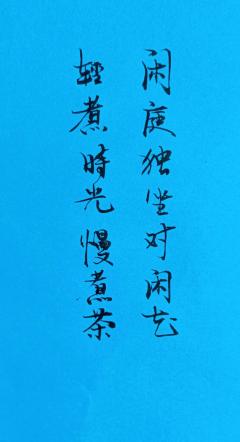 闲庭独坐对闲花
輕煮時光慢煮茶